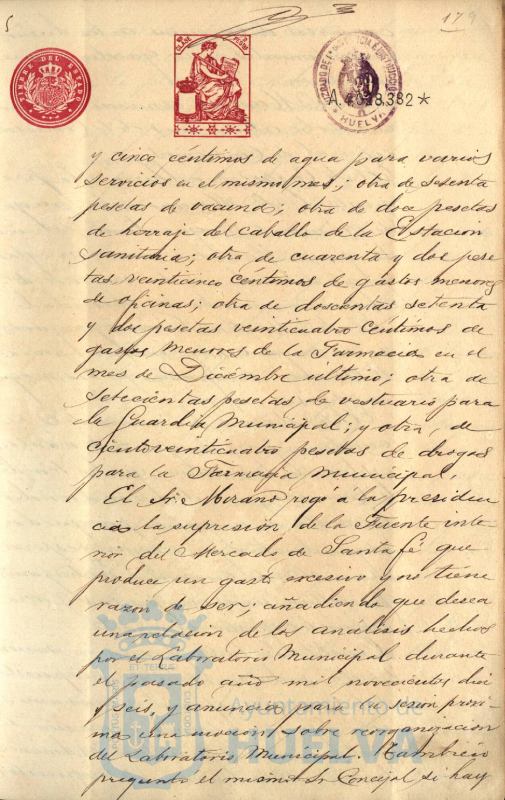 179
TIMBRE DEL ESTADO
CLASE
HUELVA
A.4.028.382*
y cinco céntimos de agua para varios
servicios en el mismo mes; otra de sesenta
pesetas de vacuna; otra de doce pesetas
de herraje del caballo de la Estacion
sanitaria; otra de cuarenta y dos pese
tas veinticinco céntimos de gastos menores
de oficinas; otra de doscientas setenta
y dos pesetas veinticuatro céntimos de
gastos menores de la Farmacia en el
mes de Diciembre último; otra de
setecientas pesetas de vestuario para
la Guardia Municipal; y otra, de
cientoveinticuatro pesetas de drogas
para la Farmacia Municipal.
El Sr. Morano rogo a la presiden
cia la supresion de la Fuente inte
rior del Mercado de Santa Fé que
produce un gasto excesivo y no tiene
razon de ser; añadiendo que desea
una relacion de los análisis hechos
por el Laboratorio Municipal durante
el pasado año mil novecientos diez
y seis, y anuncio para la sesion proxi
ma una mocion sobre reorganizacion
del Laboratorio Municipal. Tambien
pregunto el mismo Sr. Concejal si hay
Ayuntamiento de
HUELVA